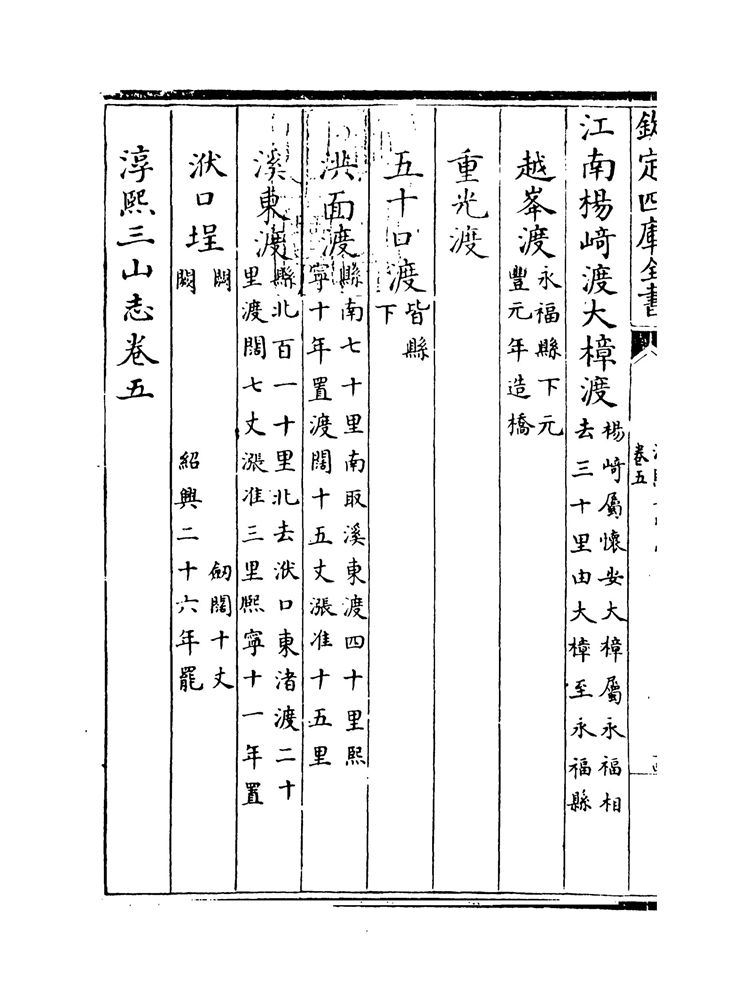 欽定四庫全書
卷五
江南楊﨑渡大樟渡楊﨑屬懷安大樟屬永福相
去三十里由大樟至永福縣
越峯渡永福縣下元
豐元年造橋
重光渡
五十口渡皆縣
下
洪面渡縣南七十里南取溪東渡四十里熙
寧十年置渡闊十五丈漲准十五里
溪東渡縣北百一十里北去洑口東渚渡二十
里渡闊七丈漲准三里熙寧十一年置
洑口埕闕 劒闊十丈
闕 紹興二十六年罷
淳熙三山志卷五